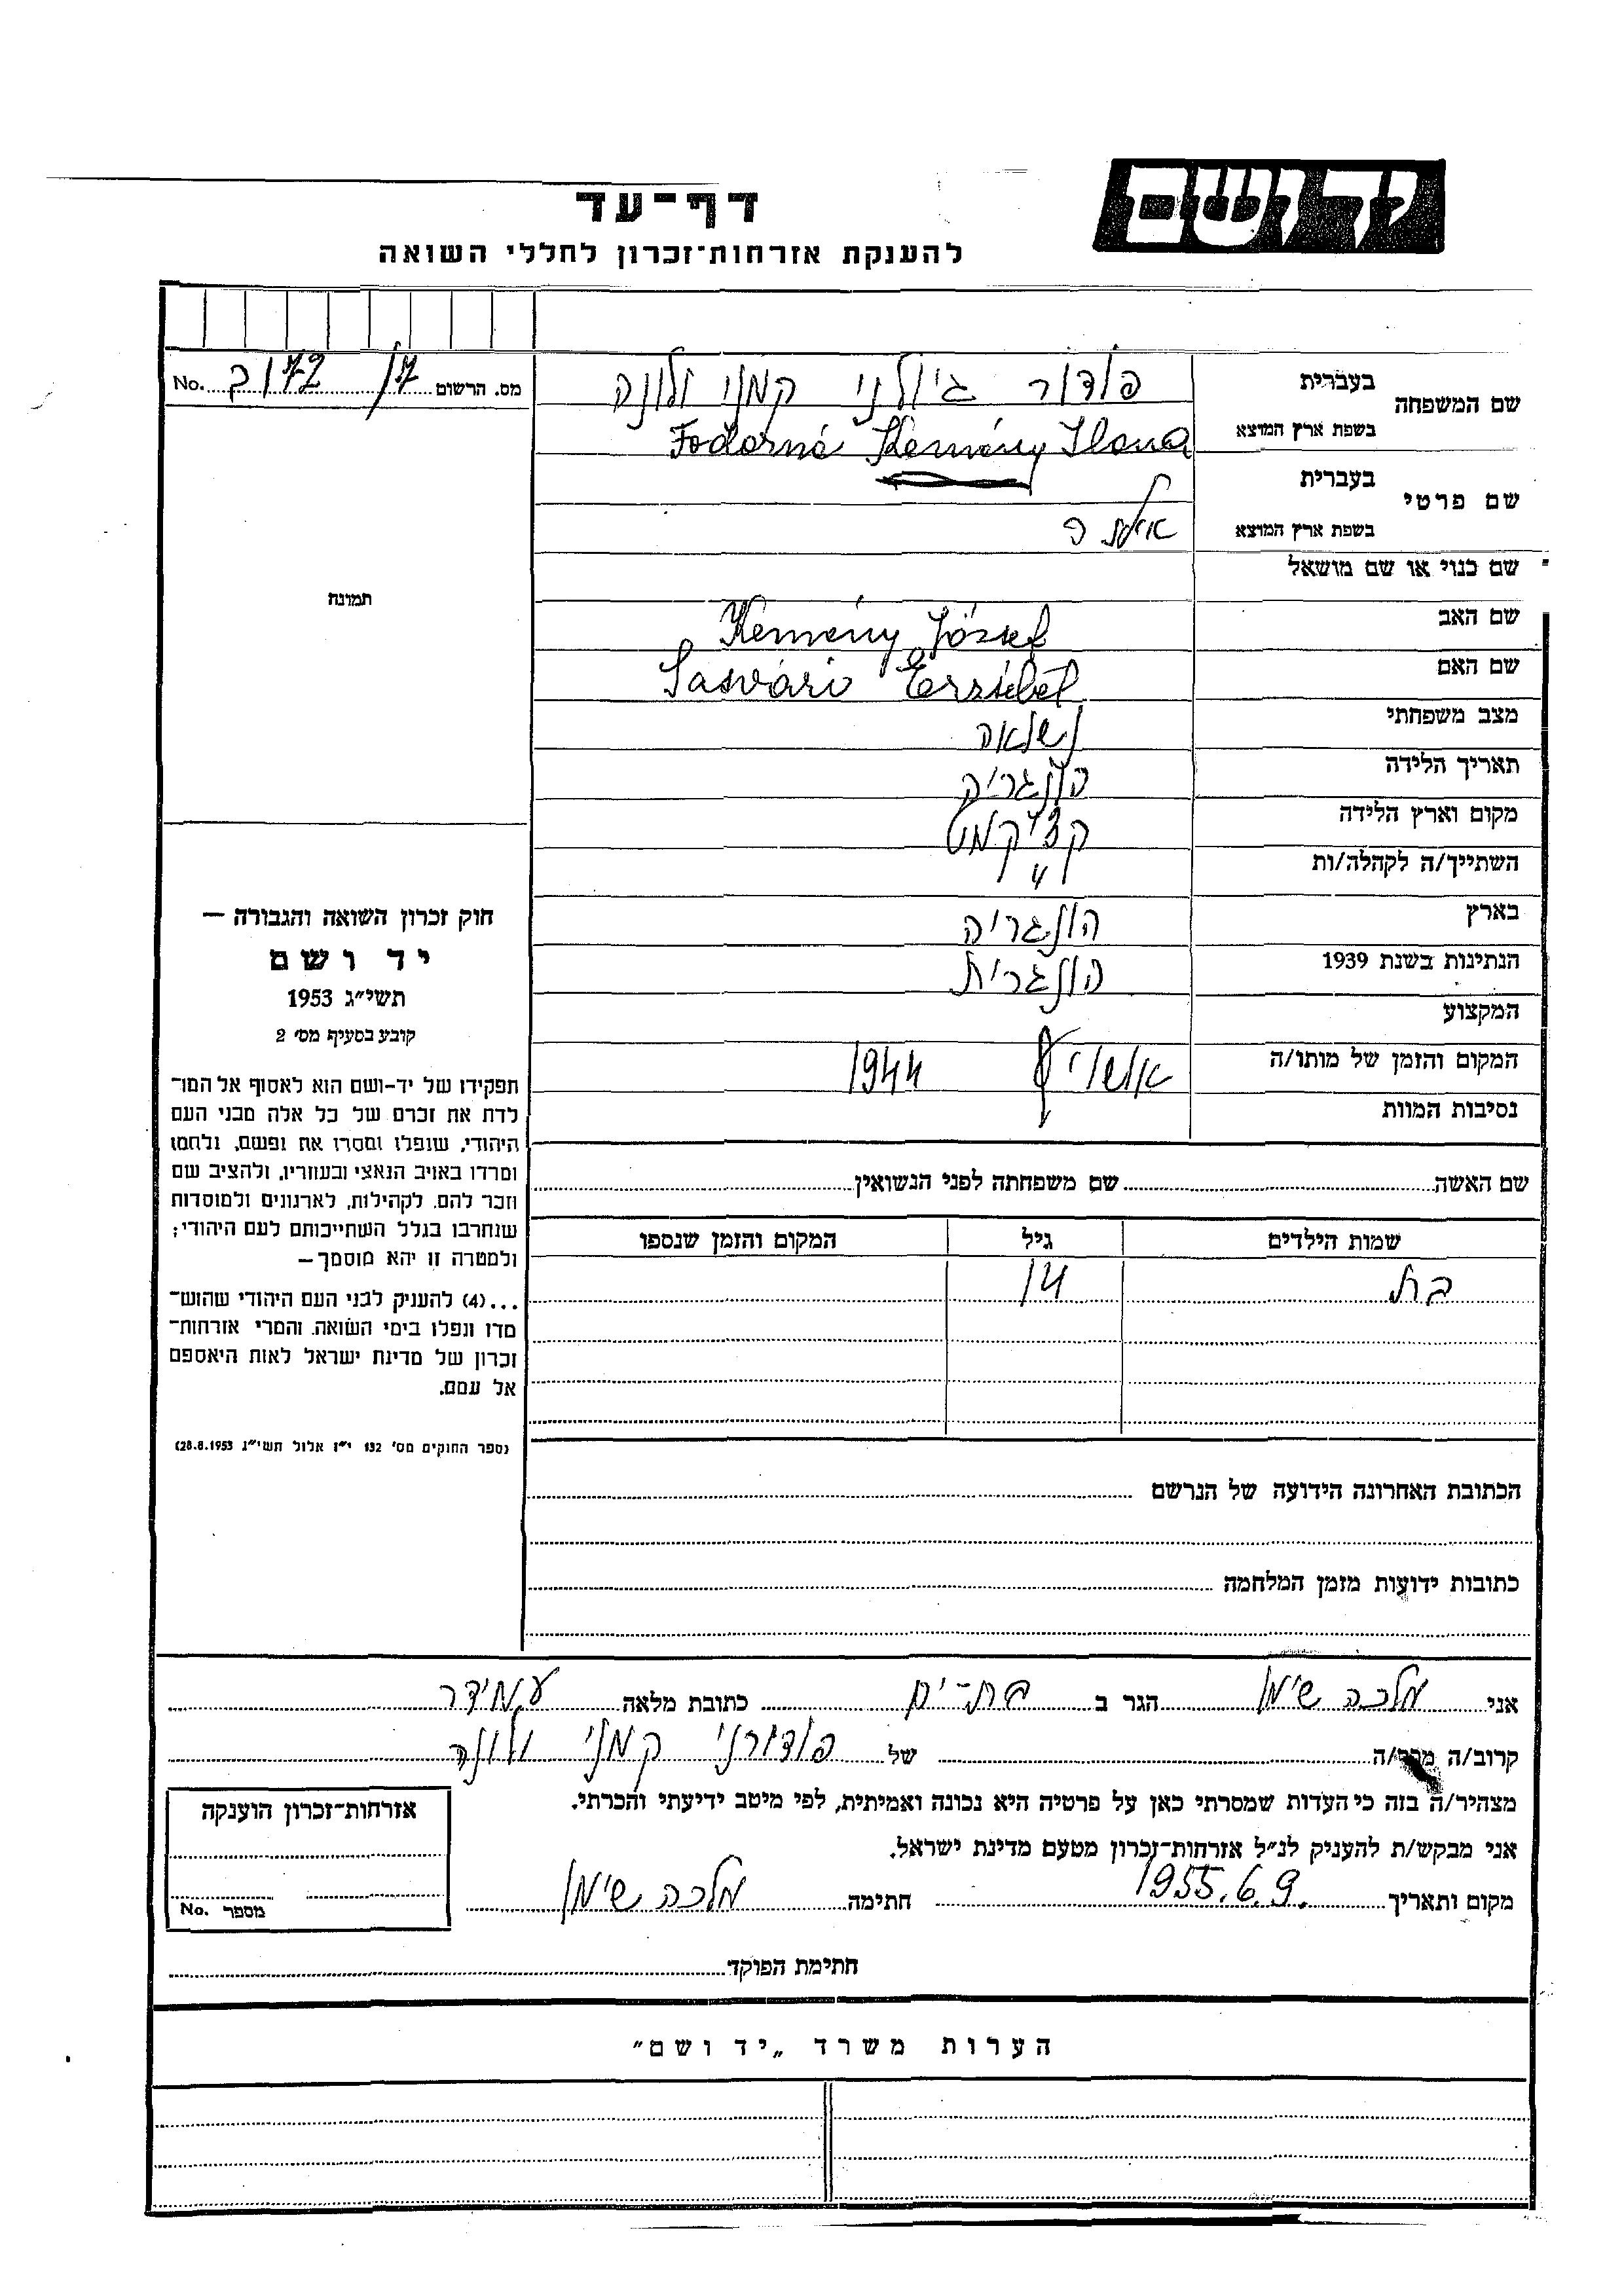 יד ושם
דף־עד
להענקת אזרחות־זכרון לחללי השואה
מס. הרשום No.
שם המשפחה
בעברית
פודור ג'ולני קמני ילונה
בשפת ארץ המוצא
Fodorné Kemény Ilona
שם פרטי
בעברית
בשפת ארץ המוצא
שם כנוי או שם מושאל
שם האב Kemény József
שם האם Sasvári Erzsébet
מצב משפחתי נשואה
תאריך הלידה הונגריה
מקום וארץ הלידה קצ'קמט
השתייך/ה לקהלה/ות "
בארץ הונגריה
הנתינות בשנת 1939 הונגרית
המקצוע
המקום והזמן של מותו/ה אושויץ 1944
נסיבות המוות
תמונה
חוק זכרון השואה והגבורה —
יד ושם
תשי"ג 1953
קובע בסעיף מס' 2
תפקידו של יד-ושם הוא לאסוף אל המו־
לדת את זכרם של כל אלה מבני העם
היהודי, שנפלו ומסרו את נפשם, נלחמו
ומרדו באויב הנאצי ובעוזריו, ולהציב שם
וזכר להם, לקהילות, לארגונים ולמוסדות
שנחרבו בגלל השתייכותם לעם היהודי;
ולמטרה זו יהא מוסמך—
...(4) להעניק לבני העם היהודי שהוש־
מדו ונפלו בימי השואה והמרי אזרחות־
זכרון של מדינת ישראל לאות היאספם
אל עמם.
(ספר החוקים מס' 132 י"ז אלול תשי"ג 28.8.1953)
שם האשה שם משפחתה לפני הנשואין
שמות הילדים גיל המקום והזמן שנספו
בת 14
הכתובת האחרונה הידועה של הנרשם
כתובות ידועות מזמן המלחמה
אני מלכה שימן הגר ב בת-ים כתובת מלאה עמידר
קרוב/ה של פודורני קמני ילונה
מצהיר/ה בזה כי העדות שמסרתי כאן על פרטיה היא נכונה ואמיתית, לפי מיטב ידיעתי והכרתי.
אני מבקש/ת להעניק לנ"ל אזרחות־זכרון מטעם מדינת ישראל.
מקום ותאריך 1955.6.9. חתימה מלכה שימן
אזרחות־זכרון הוענקה
מספר No.
חתימת הפוקד
הערות משרד „יד ושם"